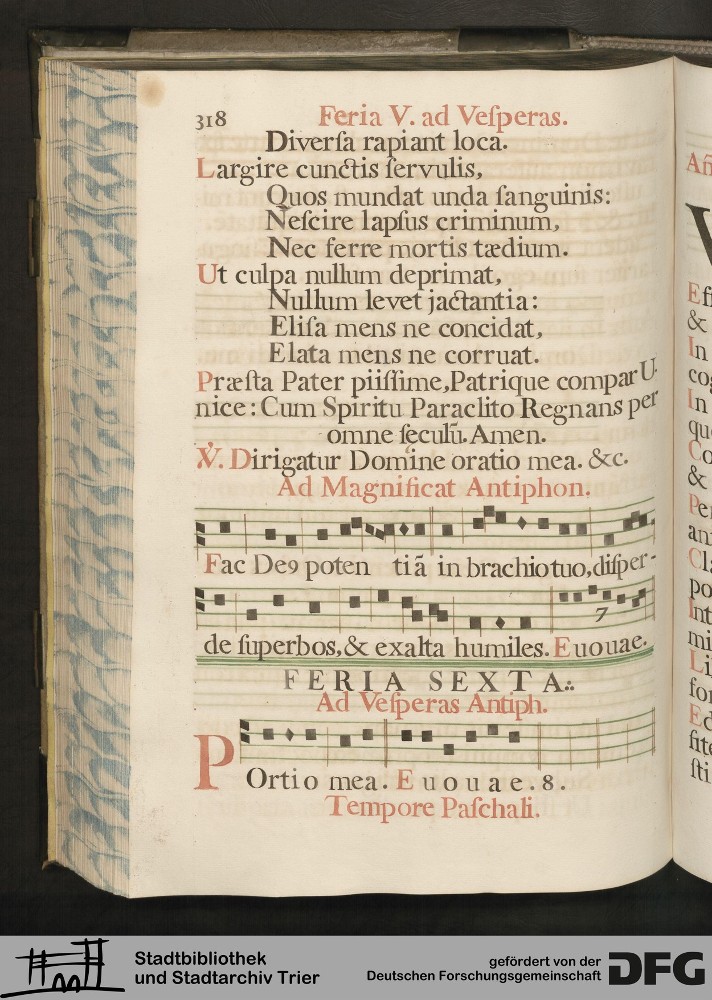 318 Feria V. ad Veſperas.
Diverſa rapiant loca.
Largire cunctis ſervulis,
Quos mundat unda ſanguinis:
Neſcire lapſus criminum,
Nec ferre mortis tædium.
Ut culpa nullum deprimat,
Nullum levet jactantia:
Eliſa mens ne concidat,
Elata mens ne corruat.
Præſta Pater piiſſime, Patrique compar U-
nice: Cum Spiritu Paraclito Regnans per
omne ſeculū. Amen.
℣. Dirigatur Domine oratio mea. &c.
Ad Magnificat Antiphon.
Fac De9 poten tiā in brachio tuo, diſper-
de ſuperbos, & exalta humiles. Euouae.
7
FERIA SEXTA:.
Ad Veſperas Antiph.
POrtio mea. Euouae. 8.
Tempore Paſchali.
Añ
V
Efi
&
In
cog
In
qu
Co
&
Per
am
Cla
po
Int
mi
Li
for
Ed
ſite
ſti
Stadtbibliothek
und Stadtarchiv Trier
gefördert von der
Deutschen Forschungsgemeinschaft
DFG